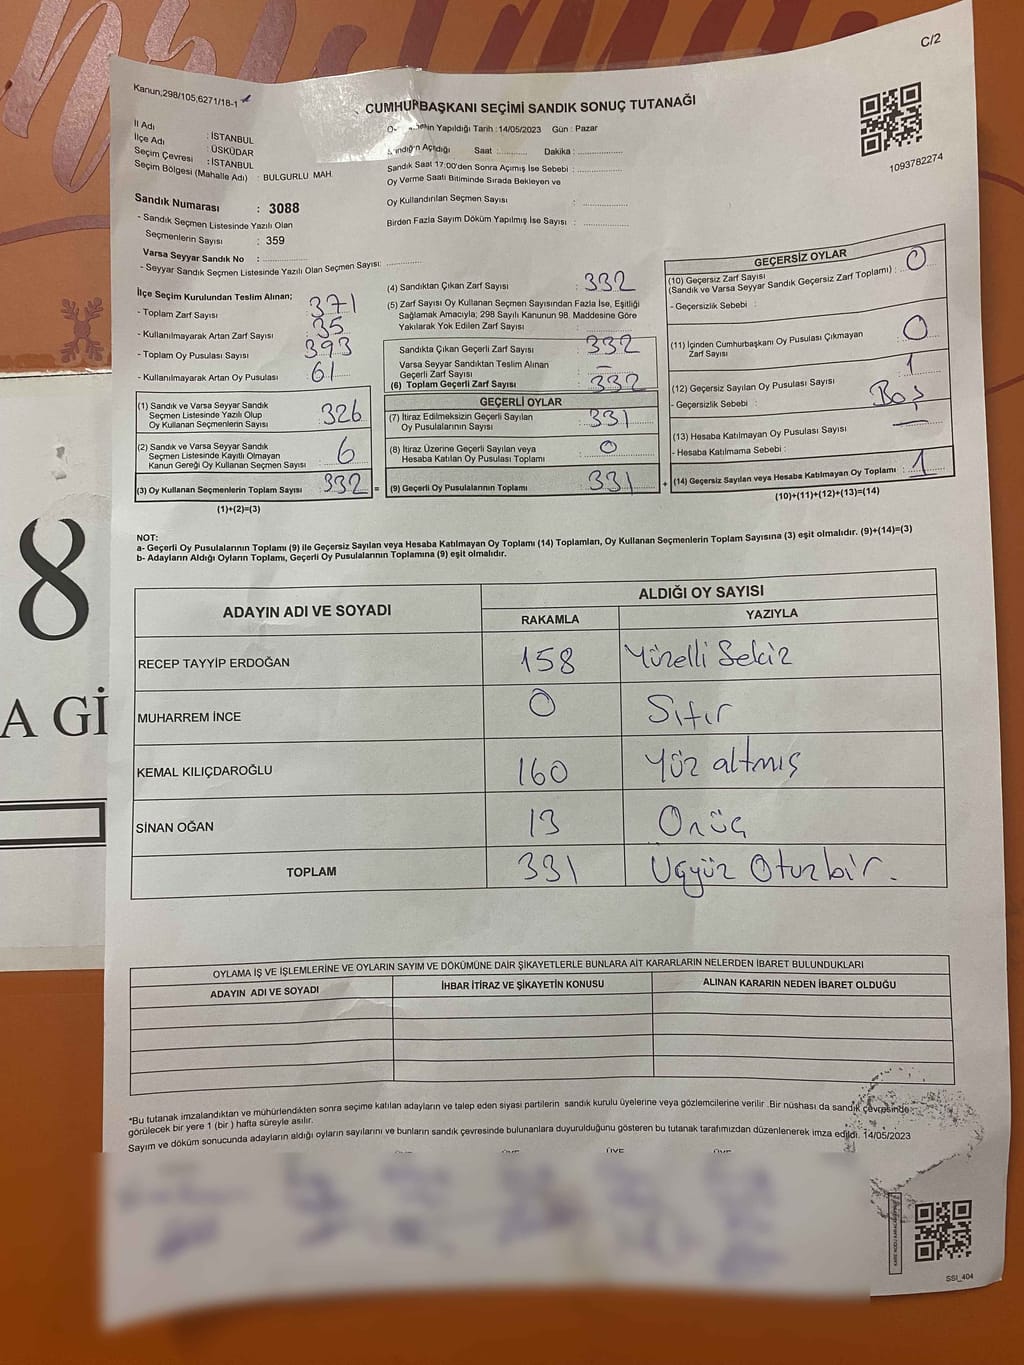 C/2
Kanun,298/105,6271/18-1
CUMHURBAŞKANI SEÇİMİ SANDIK SONUÇ TUTANAĞI
Yapıldığı Tarih : 14/05/2023 Gün : Pazar
1093782274
İl Adı : İSTANBUL
İlçe Adı : ÜSKÜDAR
Seçim Çevresi : İSTANBUL
Seçim Bölgesi (Mahalle Adı) : BULGURLU MAH.
Sandığın Açıldığı Saat : Dakika :
Sandık Saat 17:00'den Sonra Açımış İse Sebebi :
Oy Verme Saati Bitiminde Sırada Bekleyen ve
Oy Kullandırılan Seçmen Sayısı :
Birden Fazla Sayım Döküm Yapılmış İse Sayısı :
Sandık Numarası : 3088
- Sandık Seçmen Listesinde Yazılı Olan
Seçmenlerin Sayısı : 359
Varsa Seyyar Sandık No :
- Seyyar Sandık Seçmen Listesinde Yazılı Olan Seçmen Sayısı:
İlçe Seçim Kurulundan Teslim Alınan;
- Toplam Zarf Sayısı : 371
- Kullanılmayarak Artan Zarf Sayısı : 35
- Toplam Oy Pusulası Sayısı : 393
- Kullanılmayarak Artan Oy Pusulası : 61
(1) Sandık ve Varsa Seyyar Sandık
Seçmen Listesinde Yazılı Olup
Oy Kullanan Seçmenlerin Sayısı : 326
(2) Sandık ve Varsa Seyyar Sandık
Seçmen Listesinde Kayıtlı Olmayan
Kanun Gereği Oy Kullanan Seçmen Sayısı : 6
(3) Oy Kullanan Seçmenlerin Toplam Sayısı : 332 =
(1)+(2)=(3)
(4) Sandıktan Çıkan Zarf Sayısı : 332
(5) Zarf Sayısı Oy Kullanan Seçmen Sayısından Fazla İse, Eşitliği
Sağlamak Amacıyla; 298 Sayılı Kanunun 98. Maddesine Göre
Yakılarak Yok Edilen Zarf Sayısı :
Sandıkta Çıkan Geçerli Zarf Sayısı : 332
Varsa Seyyar Sandıktan Teslim Alınan
Geçerli Zarf Sayısı : —
(6) Toplam Geçerli Zarf Sayısı : 332
GEÇERLİ OYLAR
(7) İtiraz Edilmeksizin Geçerli Sayılan
Oy Pusulalarının Sayısı : 331
(8) İtiraz Üzerine Geçerli Sayılan veya
Hesaba Katılan Oy Pusulası Toplamı : 0
(9) Geçerli Oy Pusulalarının Toplamı : 331 +
GEÇERSİZ OYLAR
(10) Geçersiz Zarf Sayısı
(Sandık ve Varsa Seyyar Sandık Geçersiz Zarf Toplamı) : 0
- Geçersizlik Sebebi :
(11) İçinden Cumhurbaşkanı Oy Pusulası Çıkmayan
Zarf Sayısı : 0
(12) Geçersiz Sayılan Oy Pusulası Sayısı : 1
- Geçersizlik Sebebi : Boş
(13) Hesaba Katılmayan Oy Pusulası Sayısı : —
- Hesaba Katılmama Sebebi :
(14) Geçersiz Sayılan veya Hesaba Katılmayan Oy Toplamı : 1
(10)+(11)+(12)+(13)=(14)
NOT:
a- Geçerli Oy Pusulalarının Toplamı (9) ile Geçersiz Sayılan veya Hesaba Katılmayan Oy Toplamı (14) Toplamları, Oy Kullanan Seçmenlerin Toplam Sayısına (3) eşit olmalıdır. (9)+(14)=(3)
b- Adayların Aldığı Oyların Toplamı, Geçerli Oy Pusulalarının Toplamına (9) eşit olmalıdır.
ADAYIN ADI VE SOYADI
ALDIĞI OY SAYISI
RAKAMLA YAZIYLA
RECEP TAYYİP ERDOĞAN 158 Yüzelli Sekiz
MUHARREM İNCE 0 Sıfır
KEMAL KILIÇDAROĞLU 160 Yüz altmış
SİNAN OĞAN 13 Onüç
TOPLAM 331 Üçyüz Otuzbir.
OYLAMA İŞ VE İŞLEMLERİNE VE OYLARIN SAYIM VE DÖKÜMÜNE DAİR ŞİKAYETLERLE BUNLARA AİT KARARLARIN NELERDEN İBARET BULUNDUKLARI
ADAYIN ADI VE SOYADI İHBAR İTİRAZ VE ŞİKAYETİN KONUSU ALINAN KARARIN NEDEN İBARET OLDUĞU
*Bu tutanak imzalandıktan ve mühürlendikten sonra seçime katılan adayların ve talep eden siyasi partilerin sandık kurulu üyelerine veya gözlemcilerine verilir .Bir nüshası da sandık çevresinde
görülecek bir yere 1 (bir ) hafta süreyle asılır.
Sayım ve döküm sonucunda adayların aldığı oyların sayılarını ve bunların sandık çevresinde bulunanlara duyurulduğunu gösteren bu tutanak tarafımızdan düzenlenerek imza edildi. 14/05/2023
ÜYE ÜYE ÜYE ÜYE
SSI_404
8
A Gİ